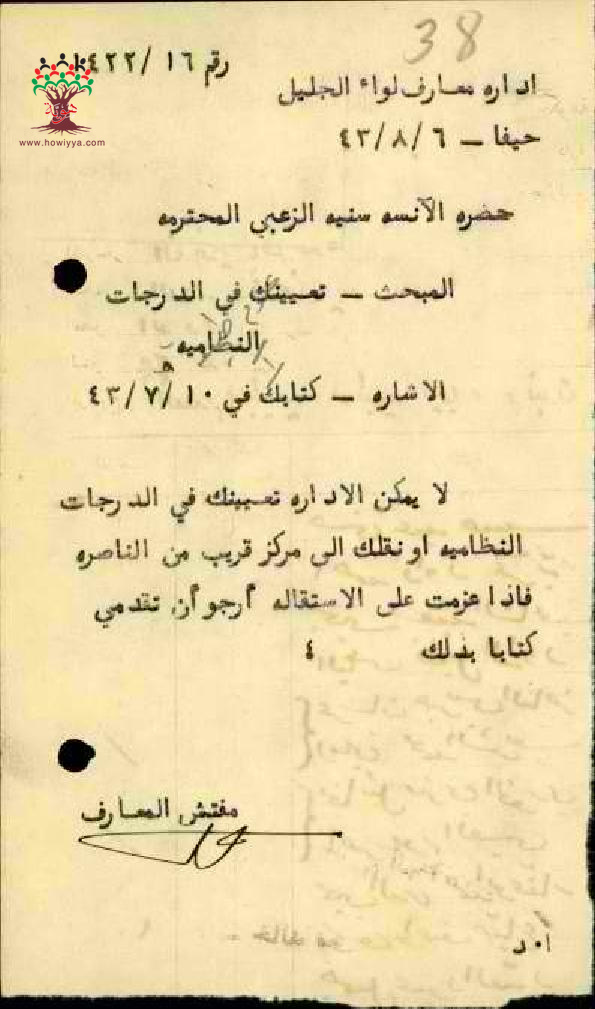 38
رقم ١٦/ ٤٢٢
www.howiyya.com
اداره معارف لواء الجليل
حيفا – ٤٣/٨/٦
حضره الآنسه سنيه الزعبي المحترمه
المبحث – تعيينك في الدرجات
النظاميه
الاشاره – كتابك في ٤٣/٧/١٠
لا يمكن الاداره تعيينك في الدرجات
النظاميه او نقلك الى مركز قريب من الناصره
فاذا عزمت على الاستقاله أرجو أن تقدمي
كتابا بذلك ٤
مفتش المعارف
ا٠د